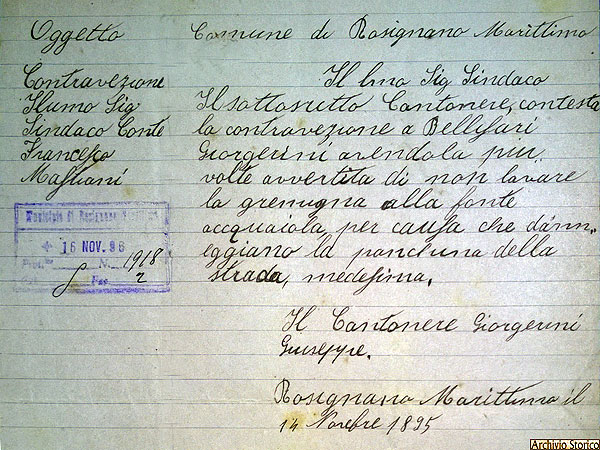 Oggetto
Contravezione
Ilumo Sig
Sindaco Conte
Francesco
Mastiani
Municipio di Rosignano Marittimo
16 NOV. 96
N. 1918
Fas. 2
Comune di Rosignano Marittimo
Il lmo Sig Sindaco
Il sottoscritto Cantonere, contesta
la contravezione a Bellisari
Giorgerini avendola piu
volte avvertita di non lavare
la gremugna alla fonte
acquaiola per causa che dánn=
eggiano la panchina della
strada, medesima.
Il Cantonere Giorgerini
Giuseppe.
Rosignano Marittimo il
14 Novebre 1895
Archivio Storico